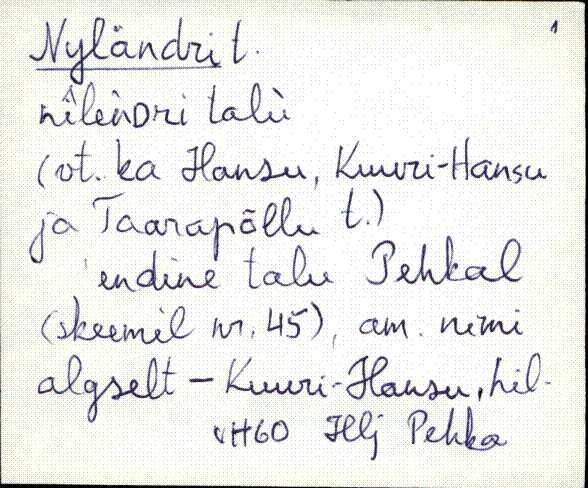 1
Nyländri t.
nîlèńDri talù
(vt. ka Hansu, Kuuri-Hansu
ja Taarapõllu t.)
endine talu Pehkal
(skeemil nr. 45), am. nimi
algselt – Kuuri-Hansu, hil-
VH60 Hlj Pehka